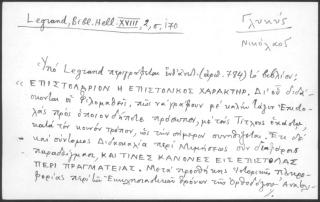 Legrand, Bibl. Hell. XVIII, 2, σ, 170
Γλυκύς
Νικόλαος
Ὑπὸ Legrand περιγράφεται (ἀριθ. 784) τὸ βιβλίον:
« ΕΠΙΣΤΟΛΑΡΙΟΝ Η ΕΠΙΣΤΟΛΙΚΟΣ ΧΑΡΑΚΤΗΡ. Δι' οὗ διδά-
σκονται οἱ φιλομαθεῖς, πῶς νὰ γράφουν μὲ καλὴν τάξιν Ἐπιστο-
λὰς πρὸς ὁποιονδήποτε πρόσωπον, μὲ τοὺς Τίτλους ἑκάστου,
κατὰ τὸν κοινὸν τρόπον, ὡς τὴν σήμερον συνηθίζεται. Ἔτι δὲ
καὶ σύντομος Διδασκαλία περὶ Μιμήσεως σὺν διαφόροις
παραδείγμασι, ΚΑΙ ΤΙΝΕΣ ΚΑΝΟΝΕΣ ΕΙΣ ΕΠΙΣΤΟΛΑΣ
ΠΕΡΙ ΠΡΑΓΜΑΤΕΙΑΣ. Μετὰ προσθήκης Ἱστορικῆς πληρο-
φορίας περὶ τῶν Ἐκκλησιαστικῶν θρόνων τῆς Ὀρθοδόξου Ἀνατο-